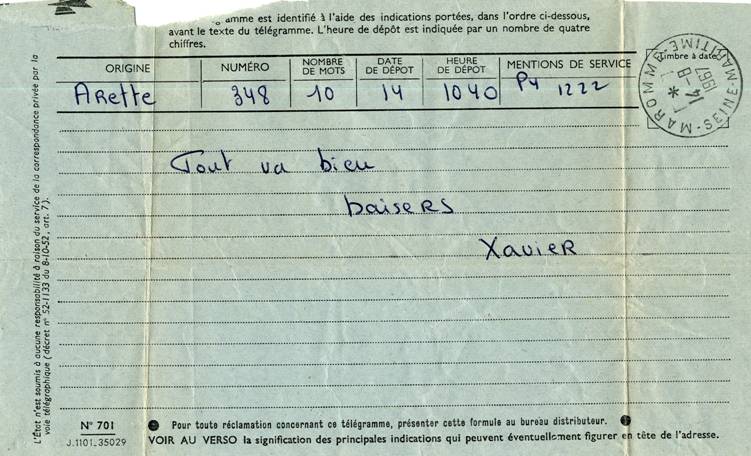 gramme est identifié à l'aide des indications portées, dans l'ordre ci-dessous,
avant le texte du télégramme. L'heure de dépôt est indiquée par un nombre de quatre
chiffres.
ORIGINE NUMÉRO NOMBRE DE MOTS DATE DE DÉPOT HEURE DE DÉPOT MENTIONS DE SERVICE Timbre à date
Arette 348 10 14 1040 P4 1222
MAROMME - SEINE-MARITIME
14 - 8
1967
Tout va bien
baisers
Xavier
L'État n'est soumis à aucune responsabilité à raison du service de la correspondance privée par la
voie télégraphique (décret n° 52-1133 du 8-10-52, art. 7).
N° 701
J.1101.35029
Pour toute réclamation concernant ce télégramme, présenter cette formule au bureau distributeur.
VOIR AU VERSO la signification des principales indications qui peuvent éventuellement figurer en tête de l'adresse.